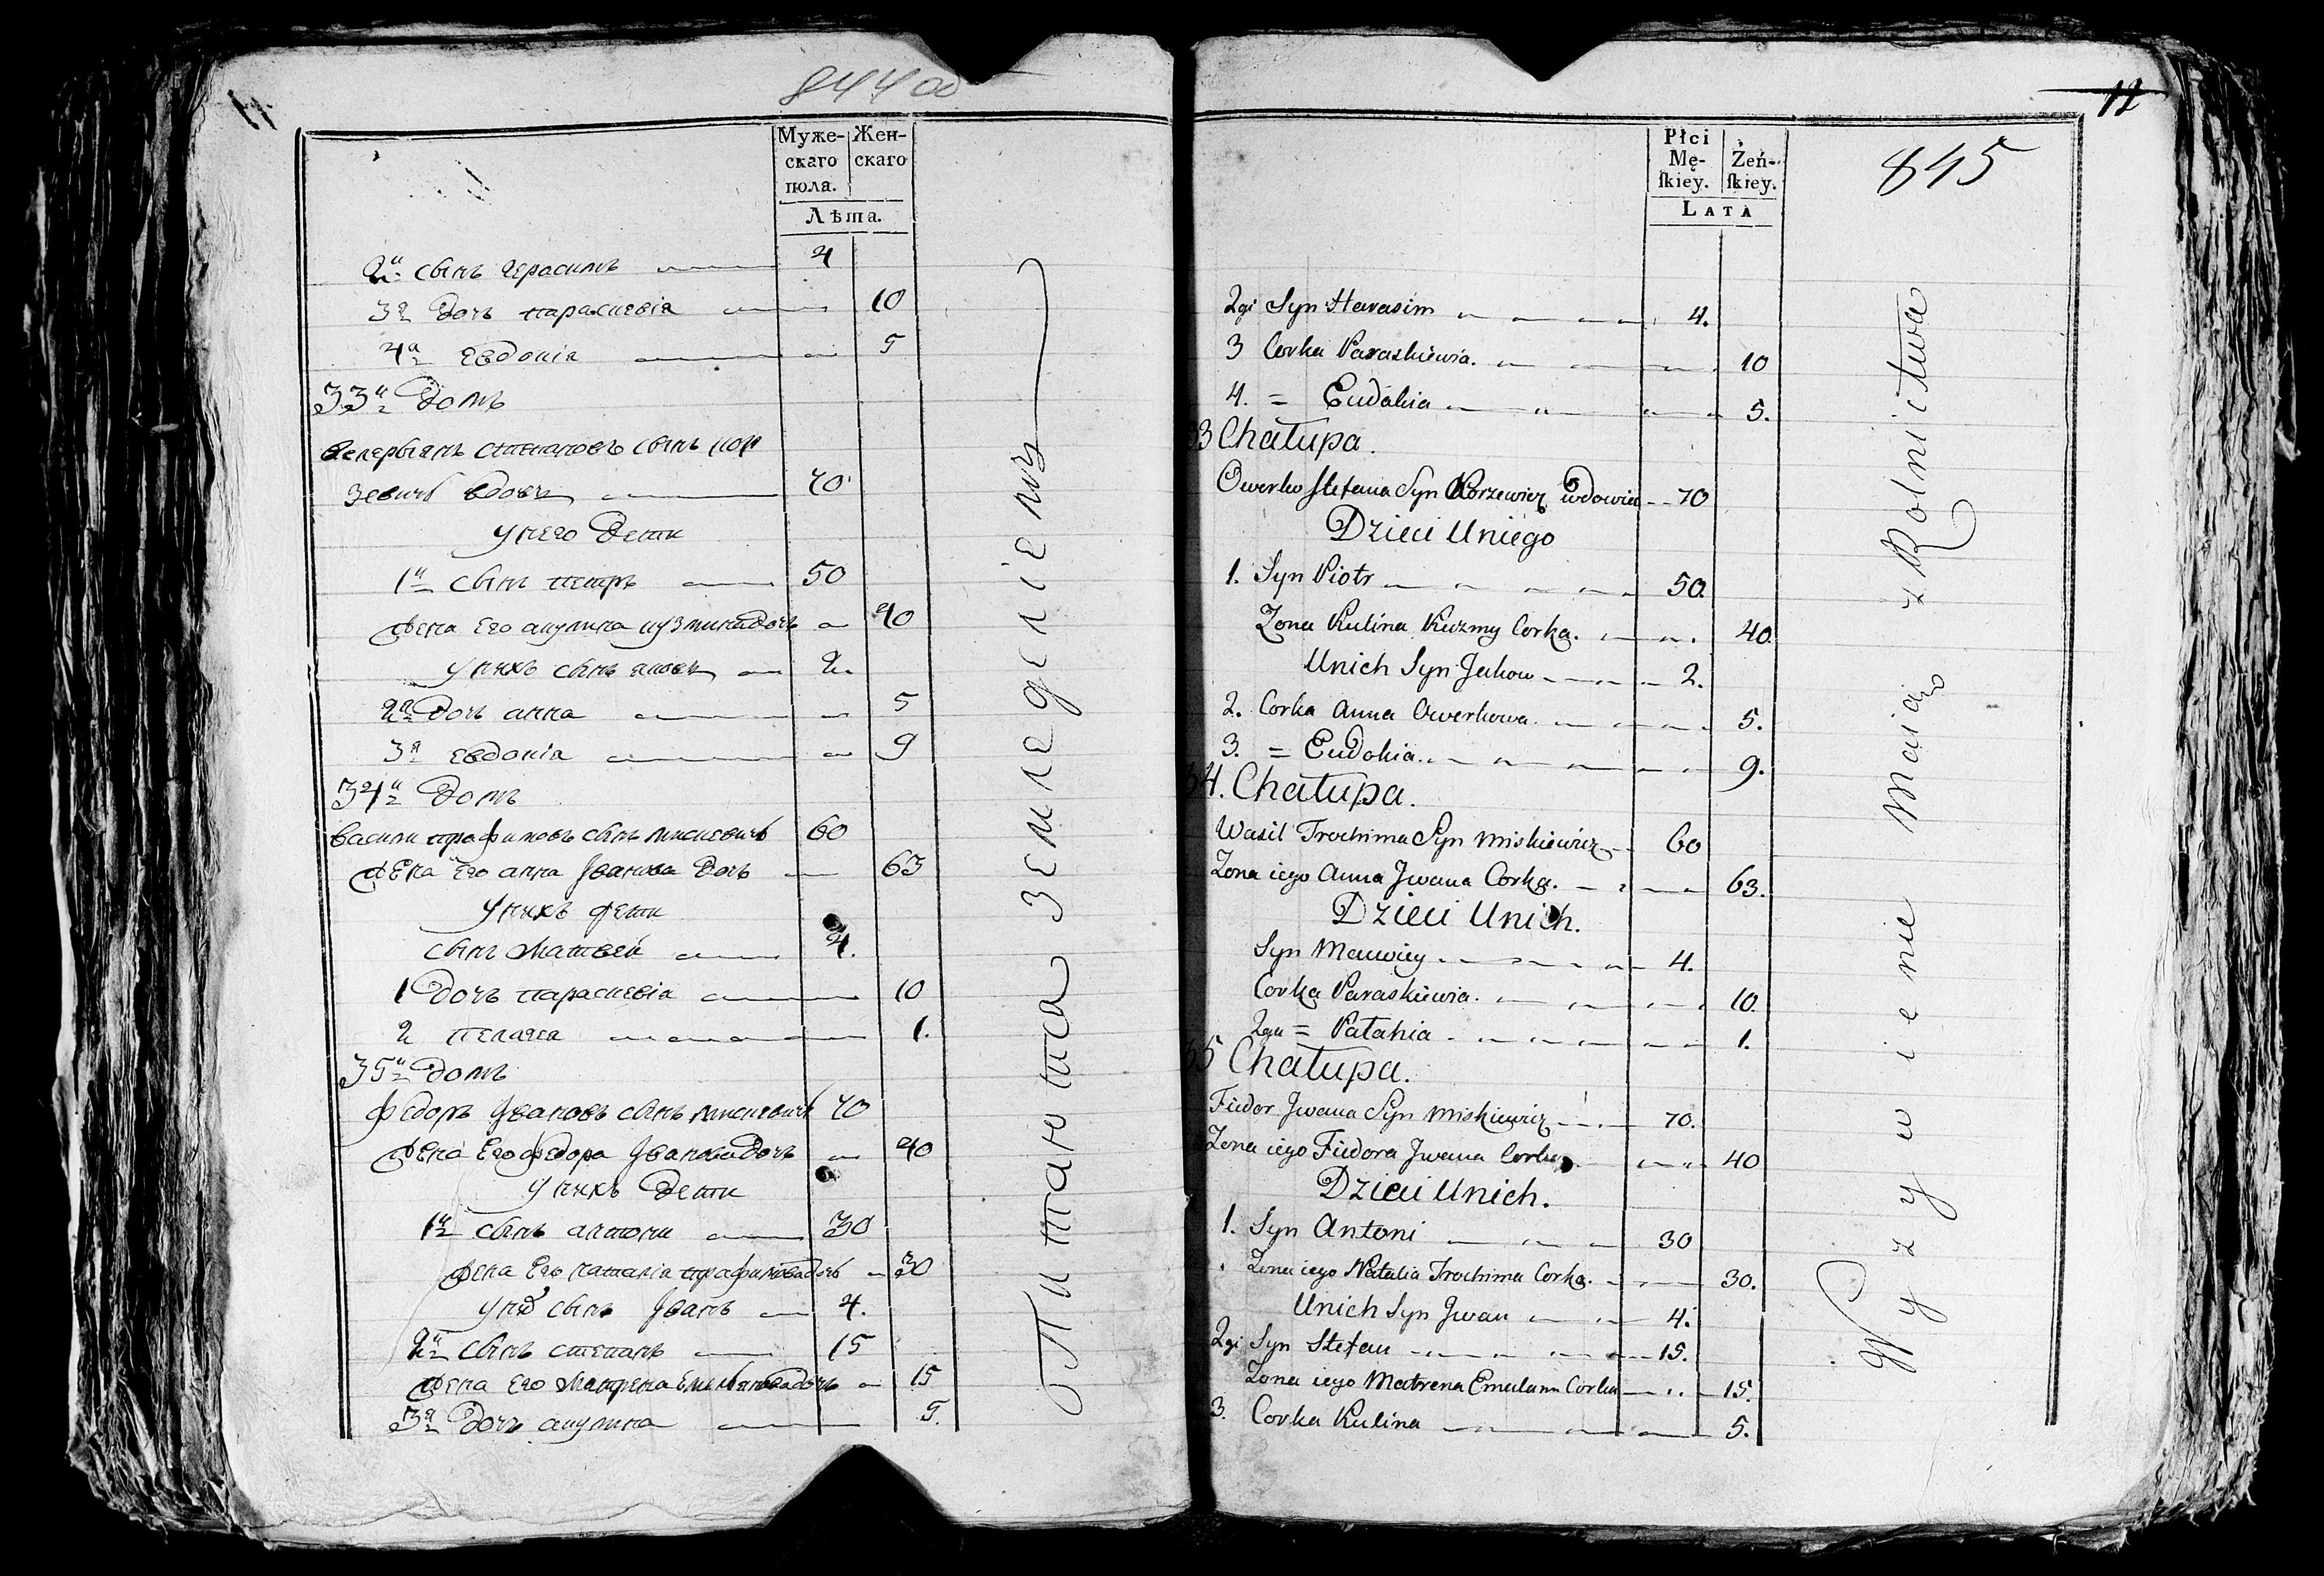 11
844 об
Муже-
скаго
пола.
Жен-
скаго
Лѣта.
2й сынъ герасимъ 4
3я дочь параскевія 10
4я евдокія 5
33й домъ
степановъ сынъ кор
зевичъ вдовецъ 70
у него дети
1й сынъ петръ 50
жена его акулина кузмина дочь 40
у нихъ сынъ яковъ 2
2я дочь анна 5
3я евдокія 9
34й домъ
василий трофимовъ сынъ мискевичъ 60
жена его анна Иванова дочь 63
у нихъ дети
сынъ Матвей 4.
1 дочь параскевія 10
2 пелагея 1.
35й домъ
федоръ Ивановъ сынъ мискевичъ 70
жена его федора Иванова дочь 40
у нихъ дети
1й сынъ антони 30
жена его наталія трофимова дочь 30
сынъ Иванъ 4.
2й сынъ степанъ 15
жена его Матрена емельянова дочь 15
3я дочь акулина 5.
Питаются земледеліемъ
12
845
Płci
Mę-
ſkiey.
Żeń-
ſkiey.
LATA
2gi Syn Harasim 4.
3 Corka Paraskiewia. 10
4. = Eudakia 5.
33 Chałupa.
Owerko Stefana Syn Korzewicz wdowiec 70
Dzieci Uniego
1. Syn Piotr 50.
Zona Kulina Kuzmy Corka. 40.
Unich Syn Jakow 2.
2. Corka Anna Owerkowa. 5.
3. = Eudokia. 9.
34. Chałupa.
Wasil Trochima Syn Miskiewicz 60
Zona iego Anna Jwana Corka. 63.
Dzieci Unich.
Syn Matwiey 4.
Corka Paraskiewia. 10.
2ga = Pałahia 1.
35 Chałupa.
Fiedor Jwana Syn Miskiewicz 70.
Zona iego Fiedora Jwana Corka 40
Dzieci Unich.
1. Syn Antoni 30
Zona iego Natalia Trochima Corka. 30.
Unich Syn Jwan 4.
2gi Syn Stefan 15.
Zona iego Matrena Corka 15.
3. Corka Kulina 5.
Wyzywienie Maią z Rolnictwa